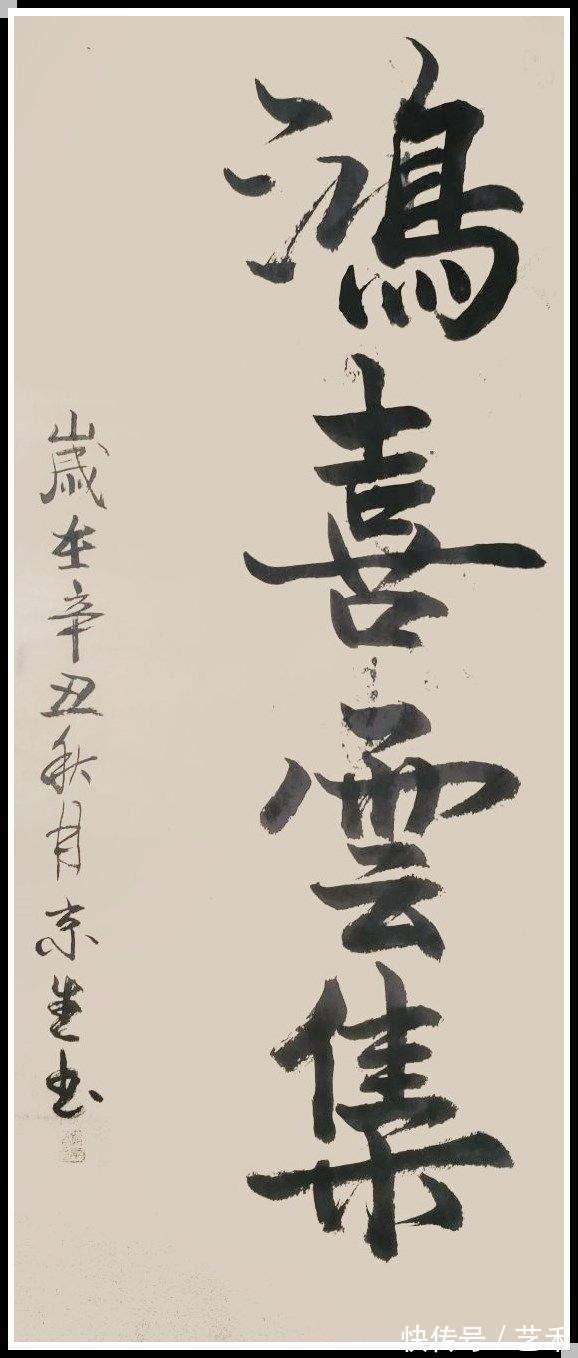 鴻喜雲集
歲在辛丑秋月京生书
快传号 / 艺